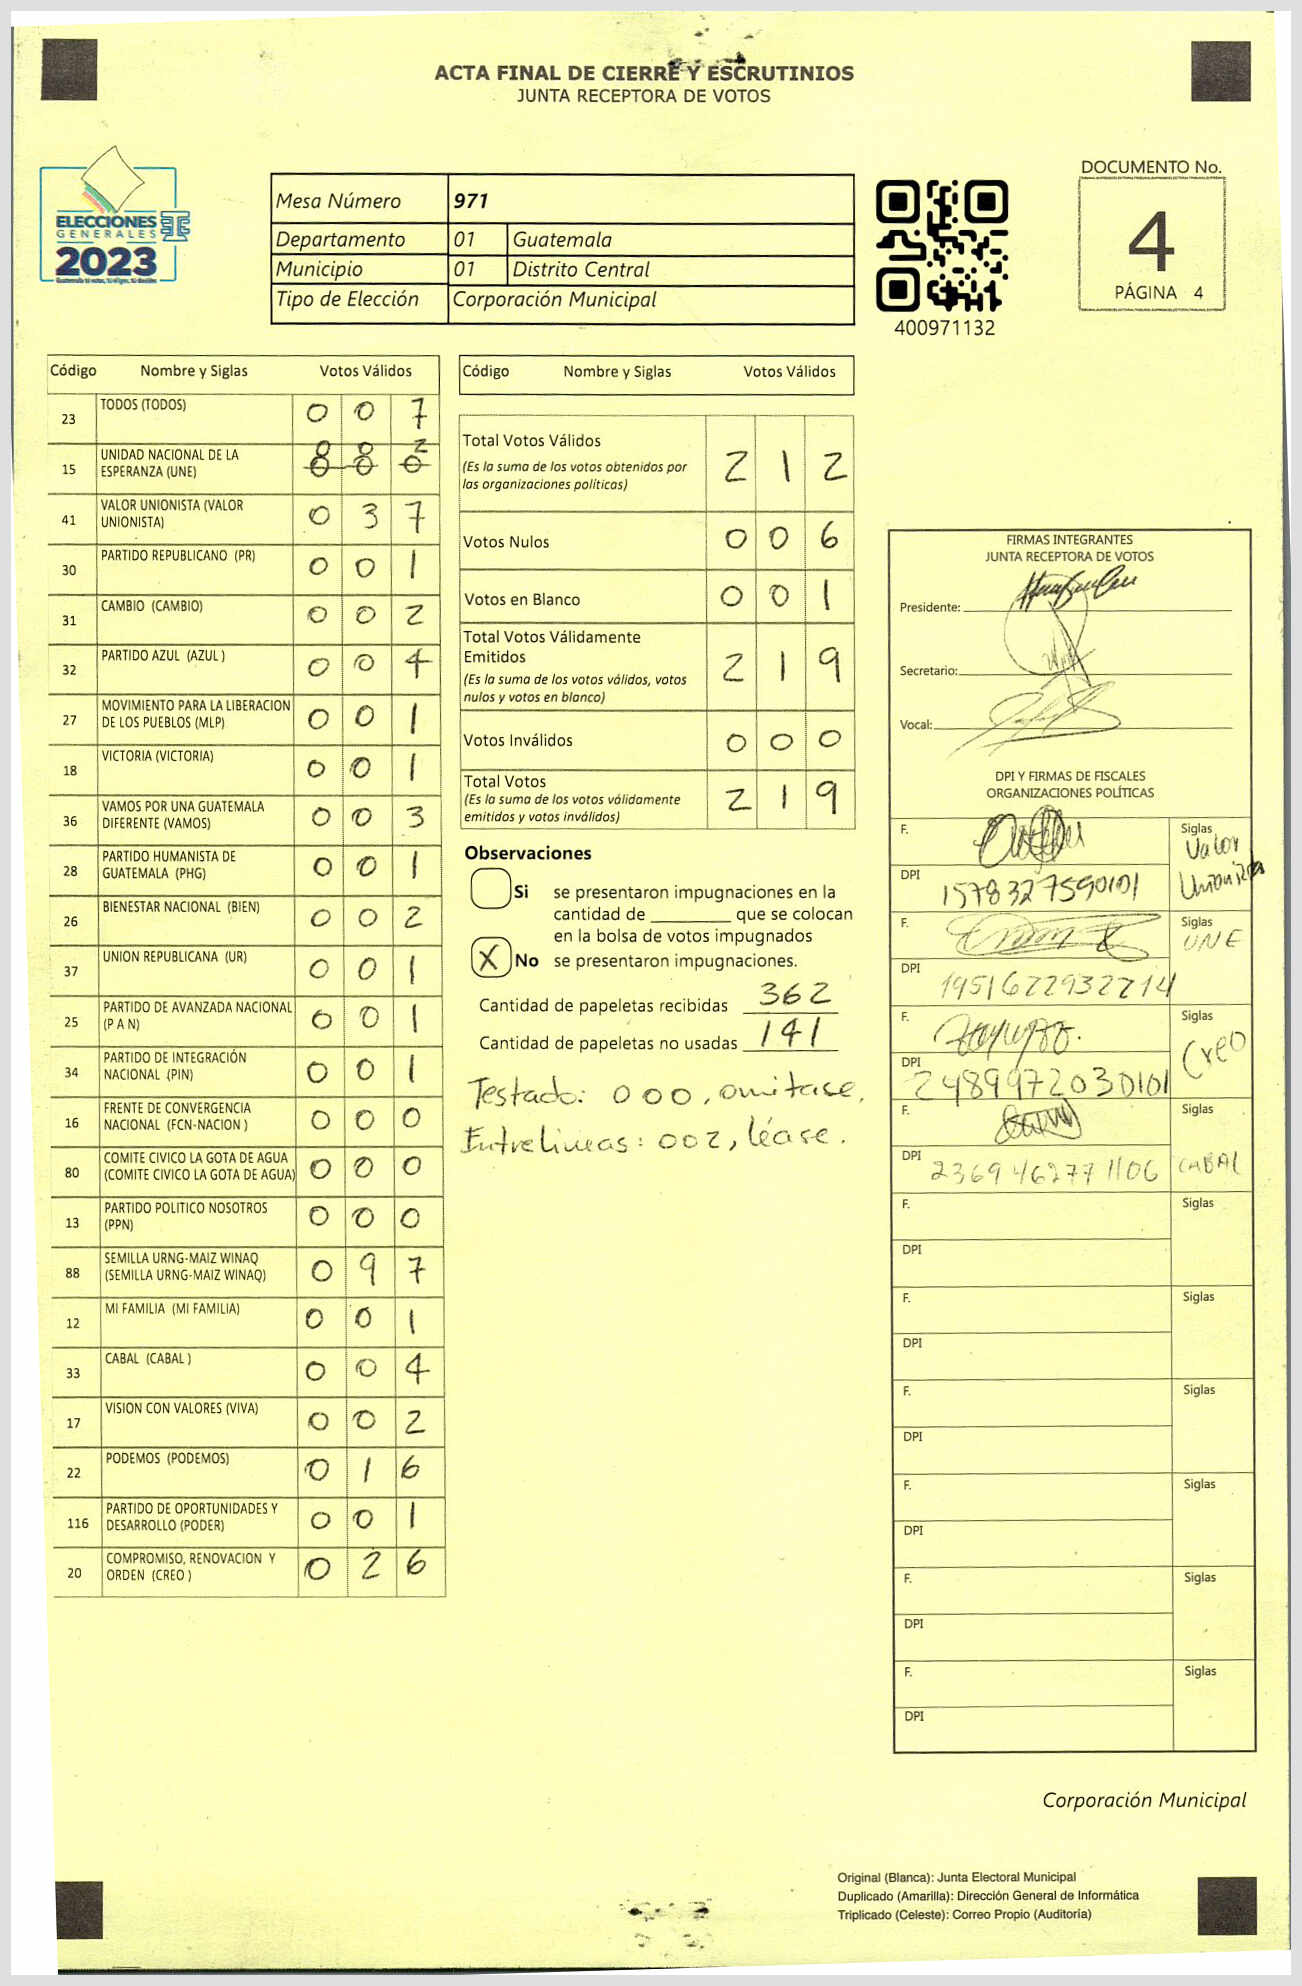 ACTA FINAL DE CIERRE Y ESCRUTINIOS
JUNTA RECEPTORA DE VOTOS
ELECCIONES
GENERALES
2023
Mesa Número 971
Departamento 01 Guatemala
Municipio 01 Distrito Central
Tipo de Elección Corporación Municipal
400971132
DOCUMENTO No.
4
PÁGINA 4
Código Nombre y Siglas Votos Válidos
23 TODOS (TODOS) 0 0 7
15 UNIDAD NACIONAL DE LA ESPERANZA (UNE) 0 0 2
41 VALOR UNIONISTA (VALOR UNIONISTA) 0 3 7
30 PARTIDO REPUBLICANO (PR) 0 0 1
31 CAMBIO (CAMBIO) 0 0 2
32 PARTIDO AZUL (AZUL ) 0 0 4
27 MOVIMIENTO PARA LA LIBERACION DE LOS PUEBLOS (MLP) 0 0 1
18 VICTORIA (VICTORIA) 0 0 1
36 VAMOS POR UNA GUATEMALA DIFERENTE (VAMOS) 0 0 3
28 PARTIDO HUMANISTA DE GUATEMALA (PHG) 0 0 1
26 BIENESTAR NACIONAL (BIEN) 0 0 2
37 UNION REPUBLICANA (UR) 0 0 1
25 PARTIDO DE AVANZADA NACIONAL (P A N) 0 0 1
34 PARTIDO DE INTEGRACIÓN NACIONAL (PIN) 0 0 1
16 FRENTE DE CONVERGENCIA NACIONAL (FCN-NACION ) 0 0 0
80 COMITE CIVICO LA GOTA DE AGUA (COMITE CIVICO LA GOTA DE AGUA) 0 0 0
13 PARTIDO POLITICO NOSOTROS (PPN) 0 0 0
88 SEMILLA URNG-MAIZ WINAQ (SEMILLA URNG-MAIZ WINAQ) 0 9 7
12 MI FAMILIA (MI FAMILIA) 0 0 1
33 CABAL (CABAL ) 0 0 4
17 VISION CON VALORES (VIVA) 0 0 2
22 PODEMOS (PODEMOS) 0 1 6
116 PARTIDO DE OPORTUNIDADES Y DESARROLLO (PODER) 0 0 1
20 COMPROMISO, RENOVACION Y ORDEN (CREO ) 0 2 6
Código Nombre y Siglas Votos Válidos
Total Votos Válidos 2 1 2
(Es la suma de los votos obtenidos por
las organizaciones políticas)
Votos Nulos 0 0 6
Votos en Blanco 0 0 1
Total Votos Válidamente
Emitidos 2 1 9
(Es la suma de los votos válidos, votos
nulos y votos en blanco)
Votos Inválidos 0 0 0
Total Votos 2 1 9
(Es la suma de los votos válidamente
emitidos y votos inválidos)
Observaciones
Si se presentaron impugnaciones en la
cantidad de ________ que se colocan
en la bolsa de votos impugnados
X No se presentaron impugnaciones.
Cantidad de papeletas recibidas 362
Cantidad de papeletas no usadas 141
Testado: 000, omitase.
Entrelineas: 002, léase.
FIRMAS INTEGRANTES
JUNTA RECEPTORA DE VOTOS
Presidente:
Secretario:
Vocal:
DPI Y FIRMAS DE FISCALES
ORGANIZACIONES POLÍTICAS
F. Siglas Valor
DPI 1578327590101 Unionista
F. Siglas UNE
DPI 1951622932214
F. Siglas Creo
DPI 2489972030101
F. Siglas
DPI 2369462771106 CABAL
F. Siglas
DPI
F. Siglas
DPI
F. Siglas
DPI
F. Siglas
DPI
F. Siglas
DPI
F. Siglas
DPI
Corporación Municipal
Original (Blanca): Junta Electoral Municipal
Duplicado (Amarilla): Dirección General de Informática
Triplicado (Celeste): Correo Propio (Auditoría)